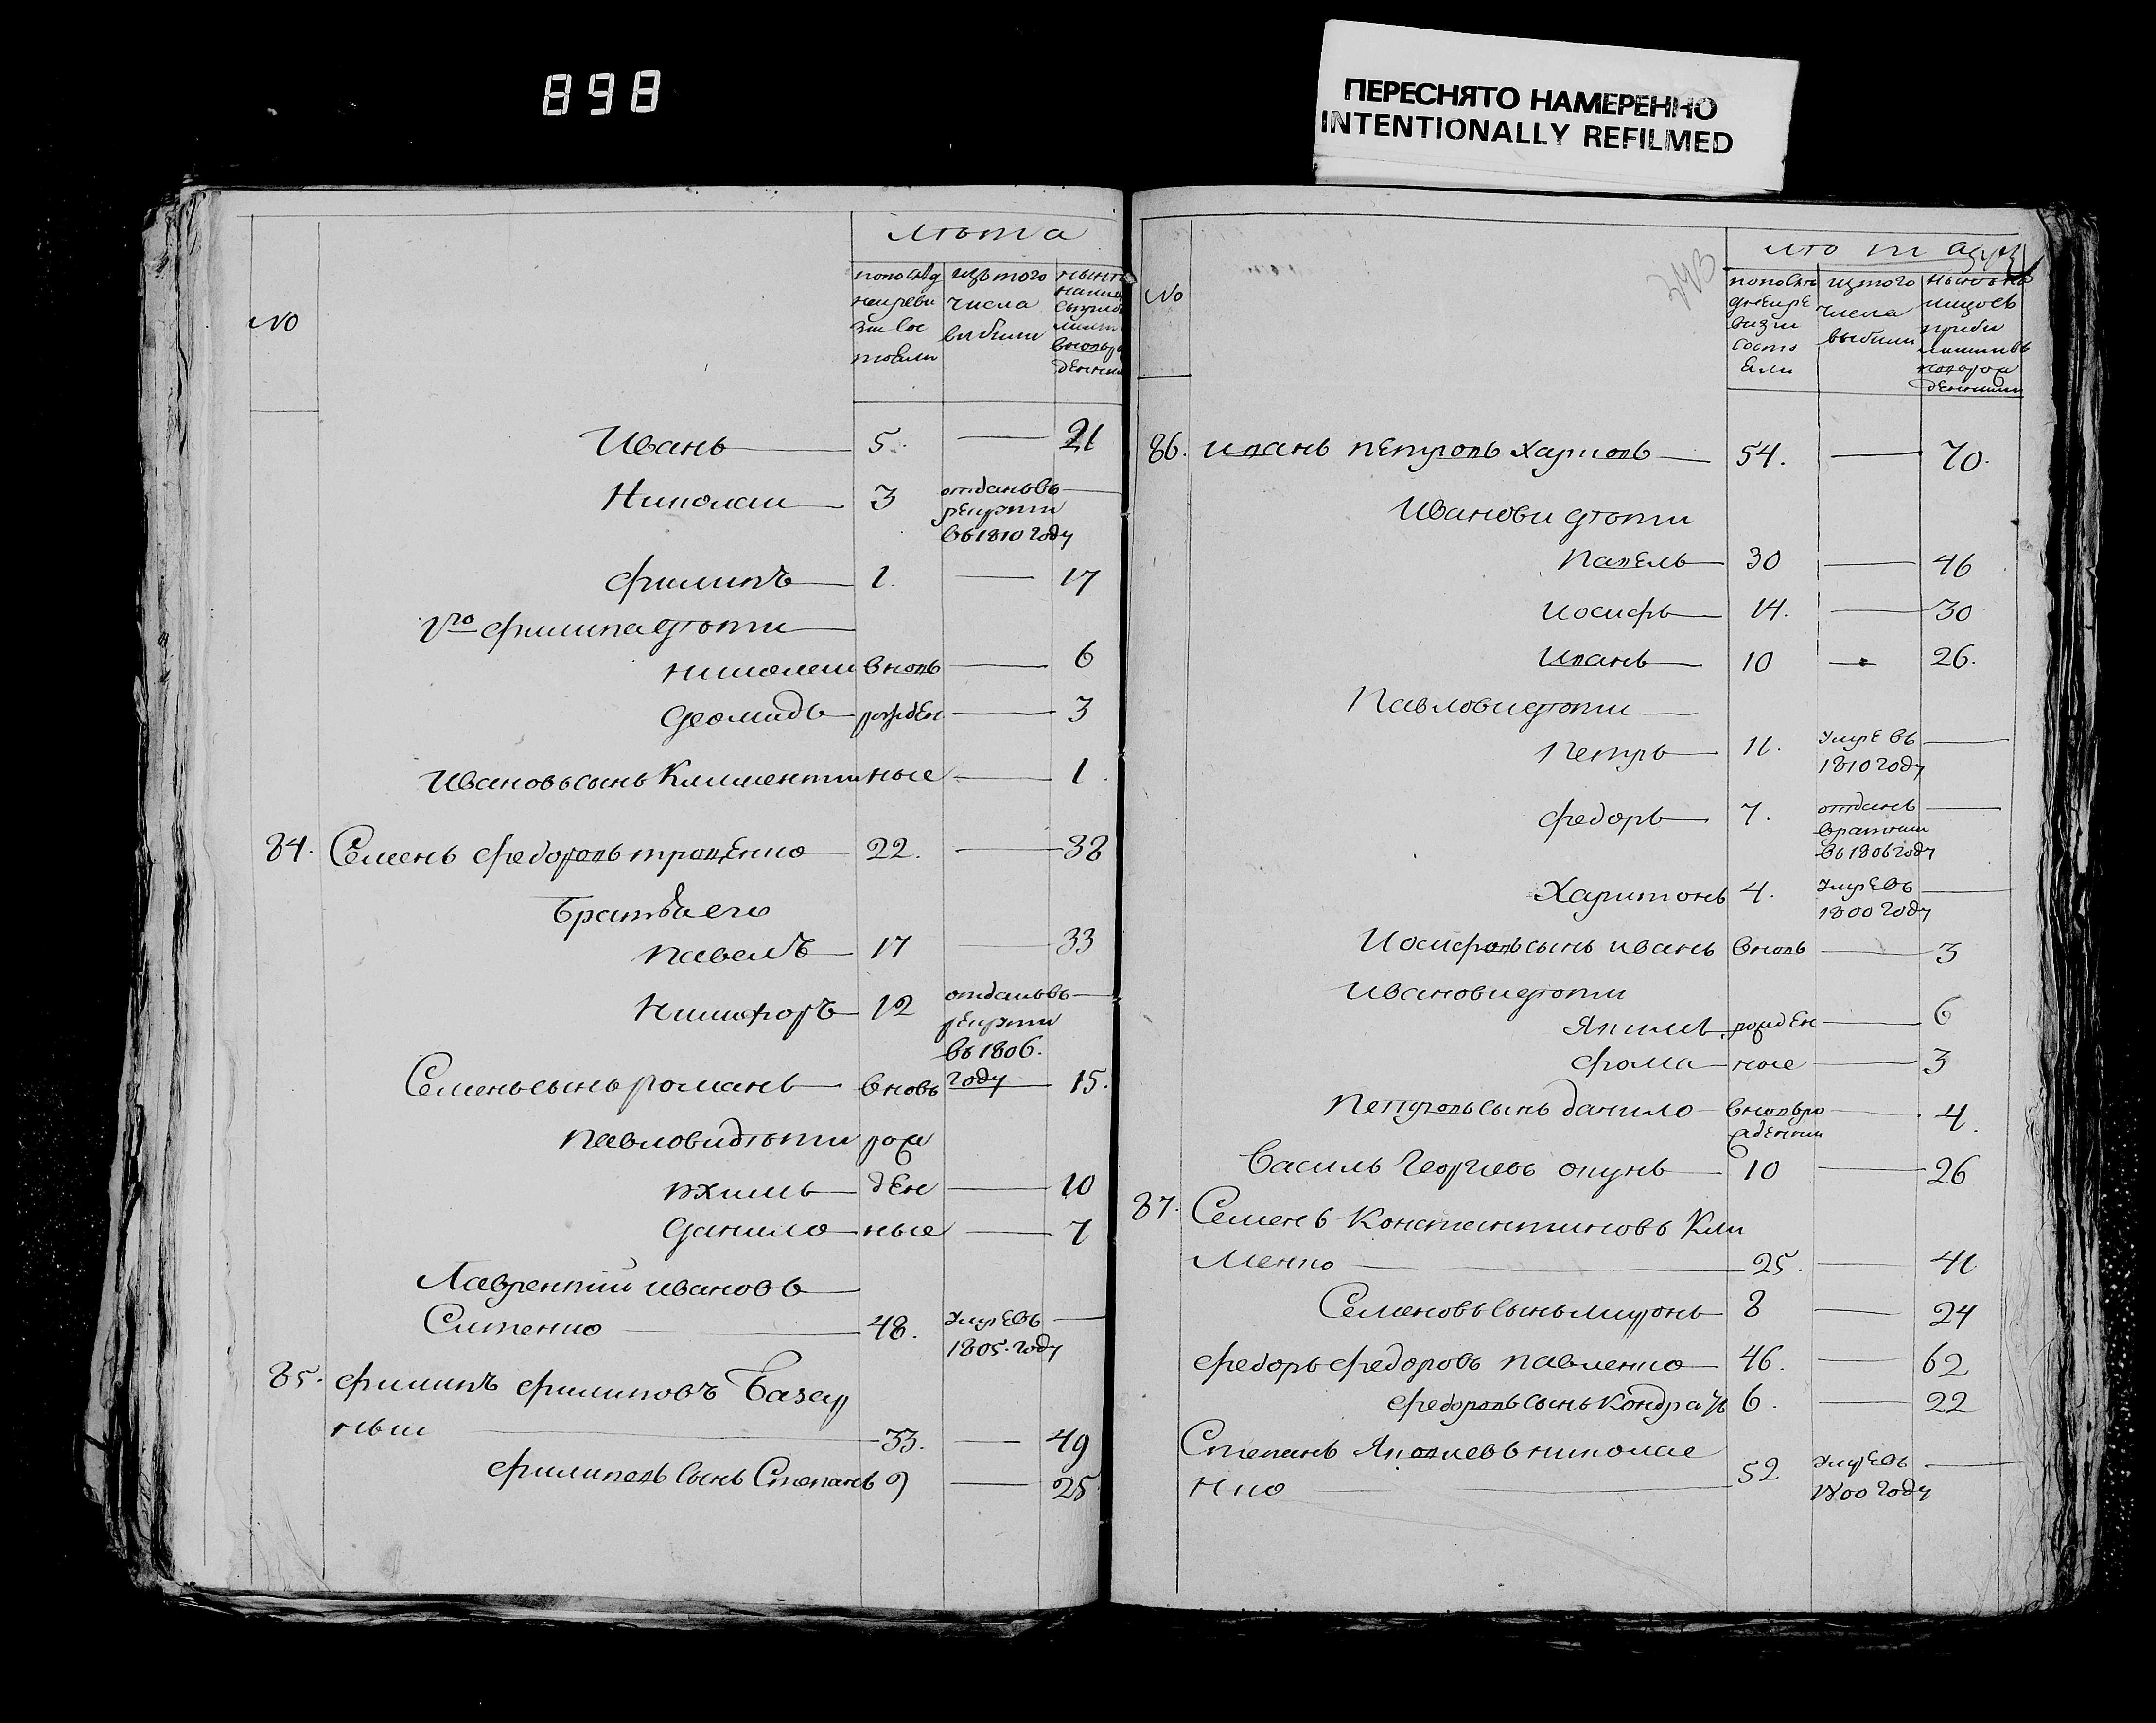 898
ПЕРЕСНЯТО НАМЕРЕННО
INTENTIONALLY REFILMED
лѣта
No
по послѣд
ней реви
зіи сос
тоѣли
изъ того
числа
выбыли
Иванъ 5. 21
Николаи 3 отданъ въ
рекрути
въ 1810 году
Филипъ 1. 17
1го Филипа дѣти
николаи вновь 6
Деомидъ рожден 3
Ивановъ сынъ Климентии ные 1
84. Семенъ Федоровъ троценко 22. 38
Братья его
Павелъ 17 33
Никифоръ 12 отданъ въ
рекрути
въ 1806.
году
Семенъ сынъ романъ вновь 15.
Павлови дѣти рож
якимъ ден 10
Данило ные 7
Лаврентий ивановъ
Ситенко 48. Умре въ
1805. году
85. Филипъ Филиповъ Базар
ныи 33. 49
Филиповъ сынъ Степанъ 9 25
243
лѣта
No
по послѣ
дней ре
визіи
состо
ѣли
изъ того
числа
выбыли
86. Иванъ Петровъ Харковъ 54. 70.
Иванови дѣти
Павелъ 30 46
Иосифъ 14. 30
Иванъ 10 26.
Павлови дѣти
Петръ 11. Умре въ
1810 году
Федоръ 7. отданъ
в ратники
въ 1806 году
Харитонъ 4. Умре въ
1800 году
Иосифовъ сынъ иванъ вновь 3
Иванови дѣти
Якимъ рожден 6
Фома ные 3
Петровъ сынъ данило вновь ро 4.
жденни
Василь Георгиевъ окунь 10 26
87. Семенъ Константиновъ Кли
менко 25. 41
Семеновъ сынъ миронъ 8 24
Федоръ Федоровъ Павленко 46. 62
Федоровъ сынъ Кондратъ 6. 22
Степанъ Яковлевъ николае
нко 52 Умре въ
1800 году